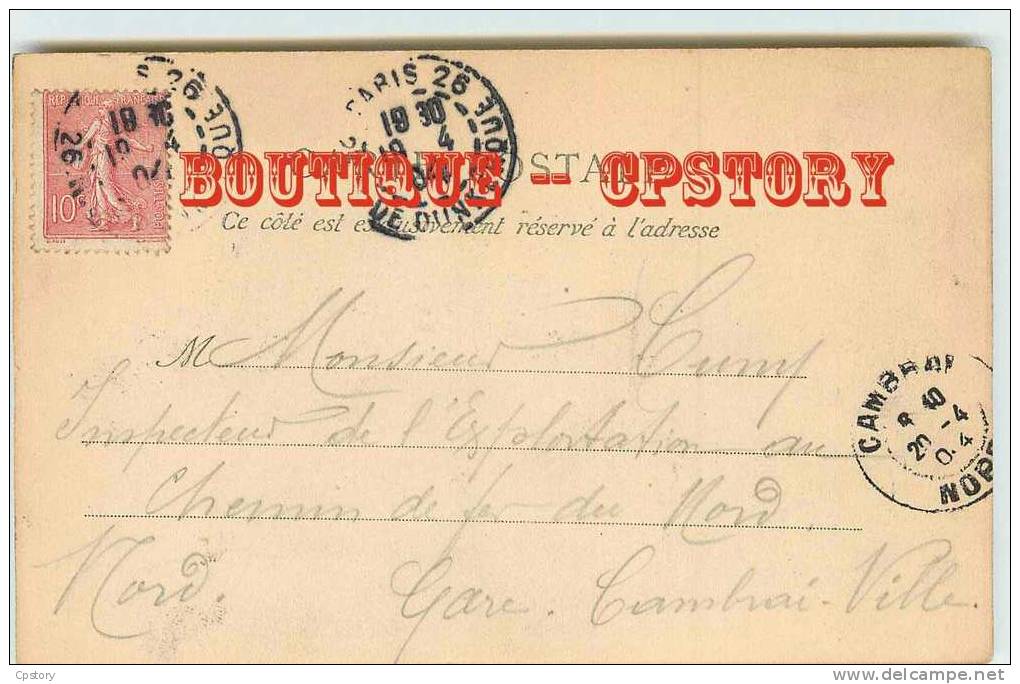 RÉPUBLIQUE FRANÇAISE
10
PARIS 26
19 30
4
04
CARTE POSTALE
BOUTIQUE -- CPSTORY
Ce côté est exclusivement réservé à l'adresse
M Monsieur Cump
Inspecteur de l'Exploitation au
Chemin de fer du Nord.
Nord. Gare. Cambrai-Ville.
CAMBRAI
8 40
-4
04
NORD
Cpstory
www.delcampe.net